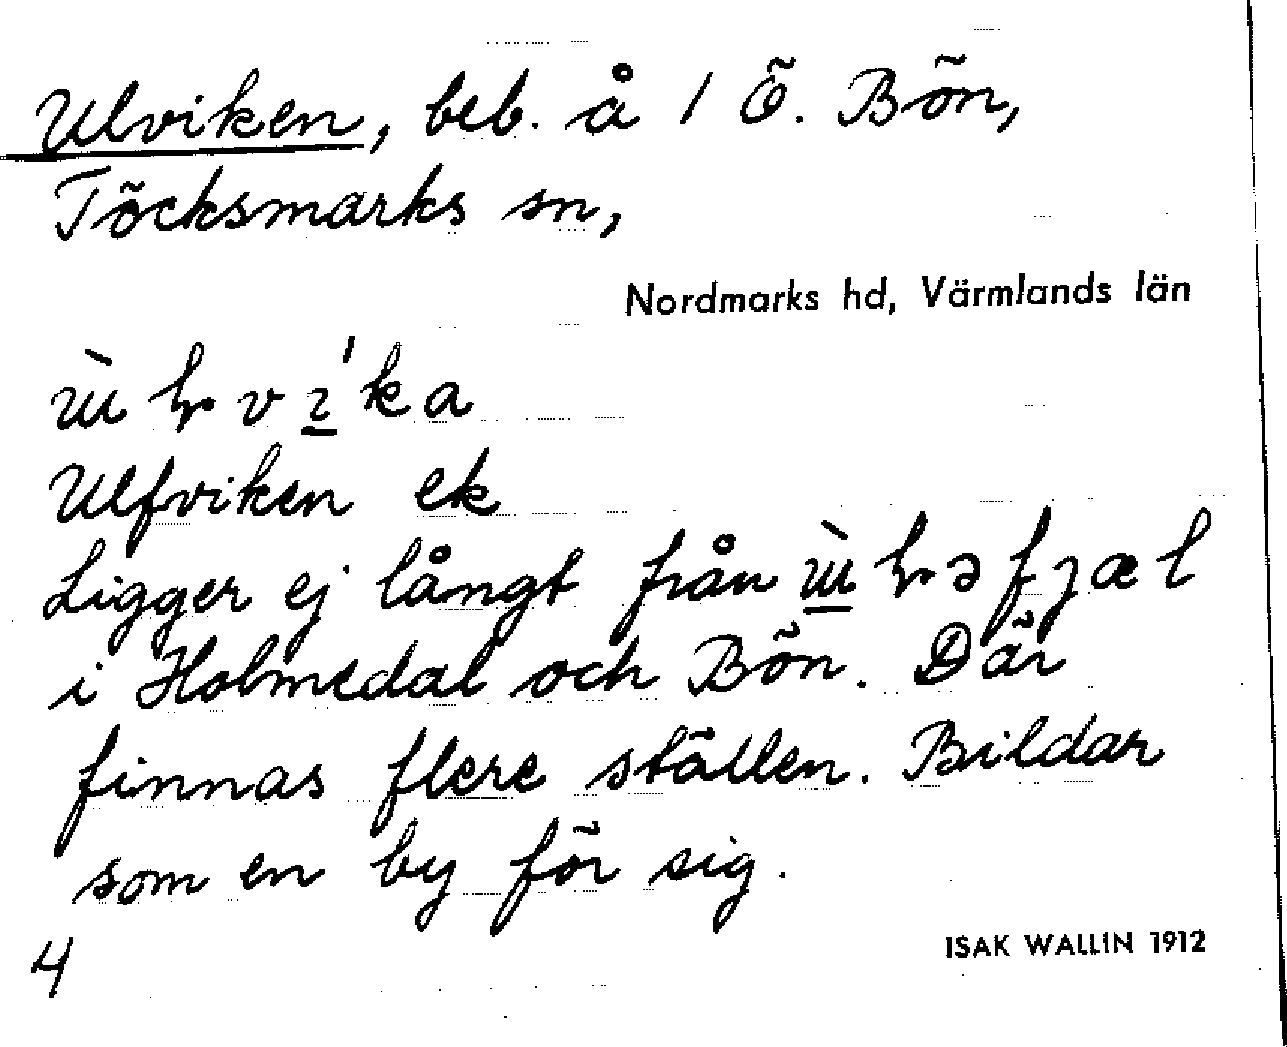 Ulviken, beb. å 1 Ö. Bön,
Töcksmarks sn,
Nordmarks hd, Värmlands län
Ulfviken ek
Ligger ej långt från
i Holmedal och Bön. Där
finnas flere ställen. Bildar
som en by för sig.
4
ISAK WALLIN 1912